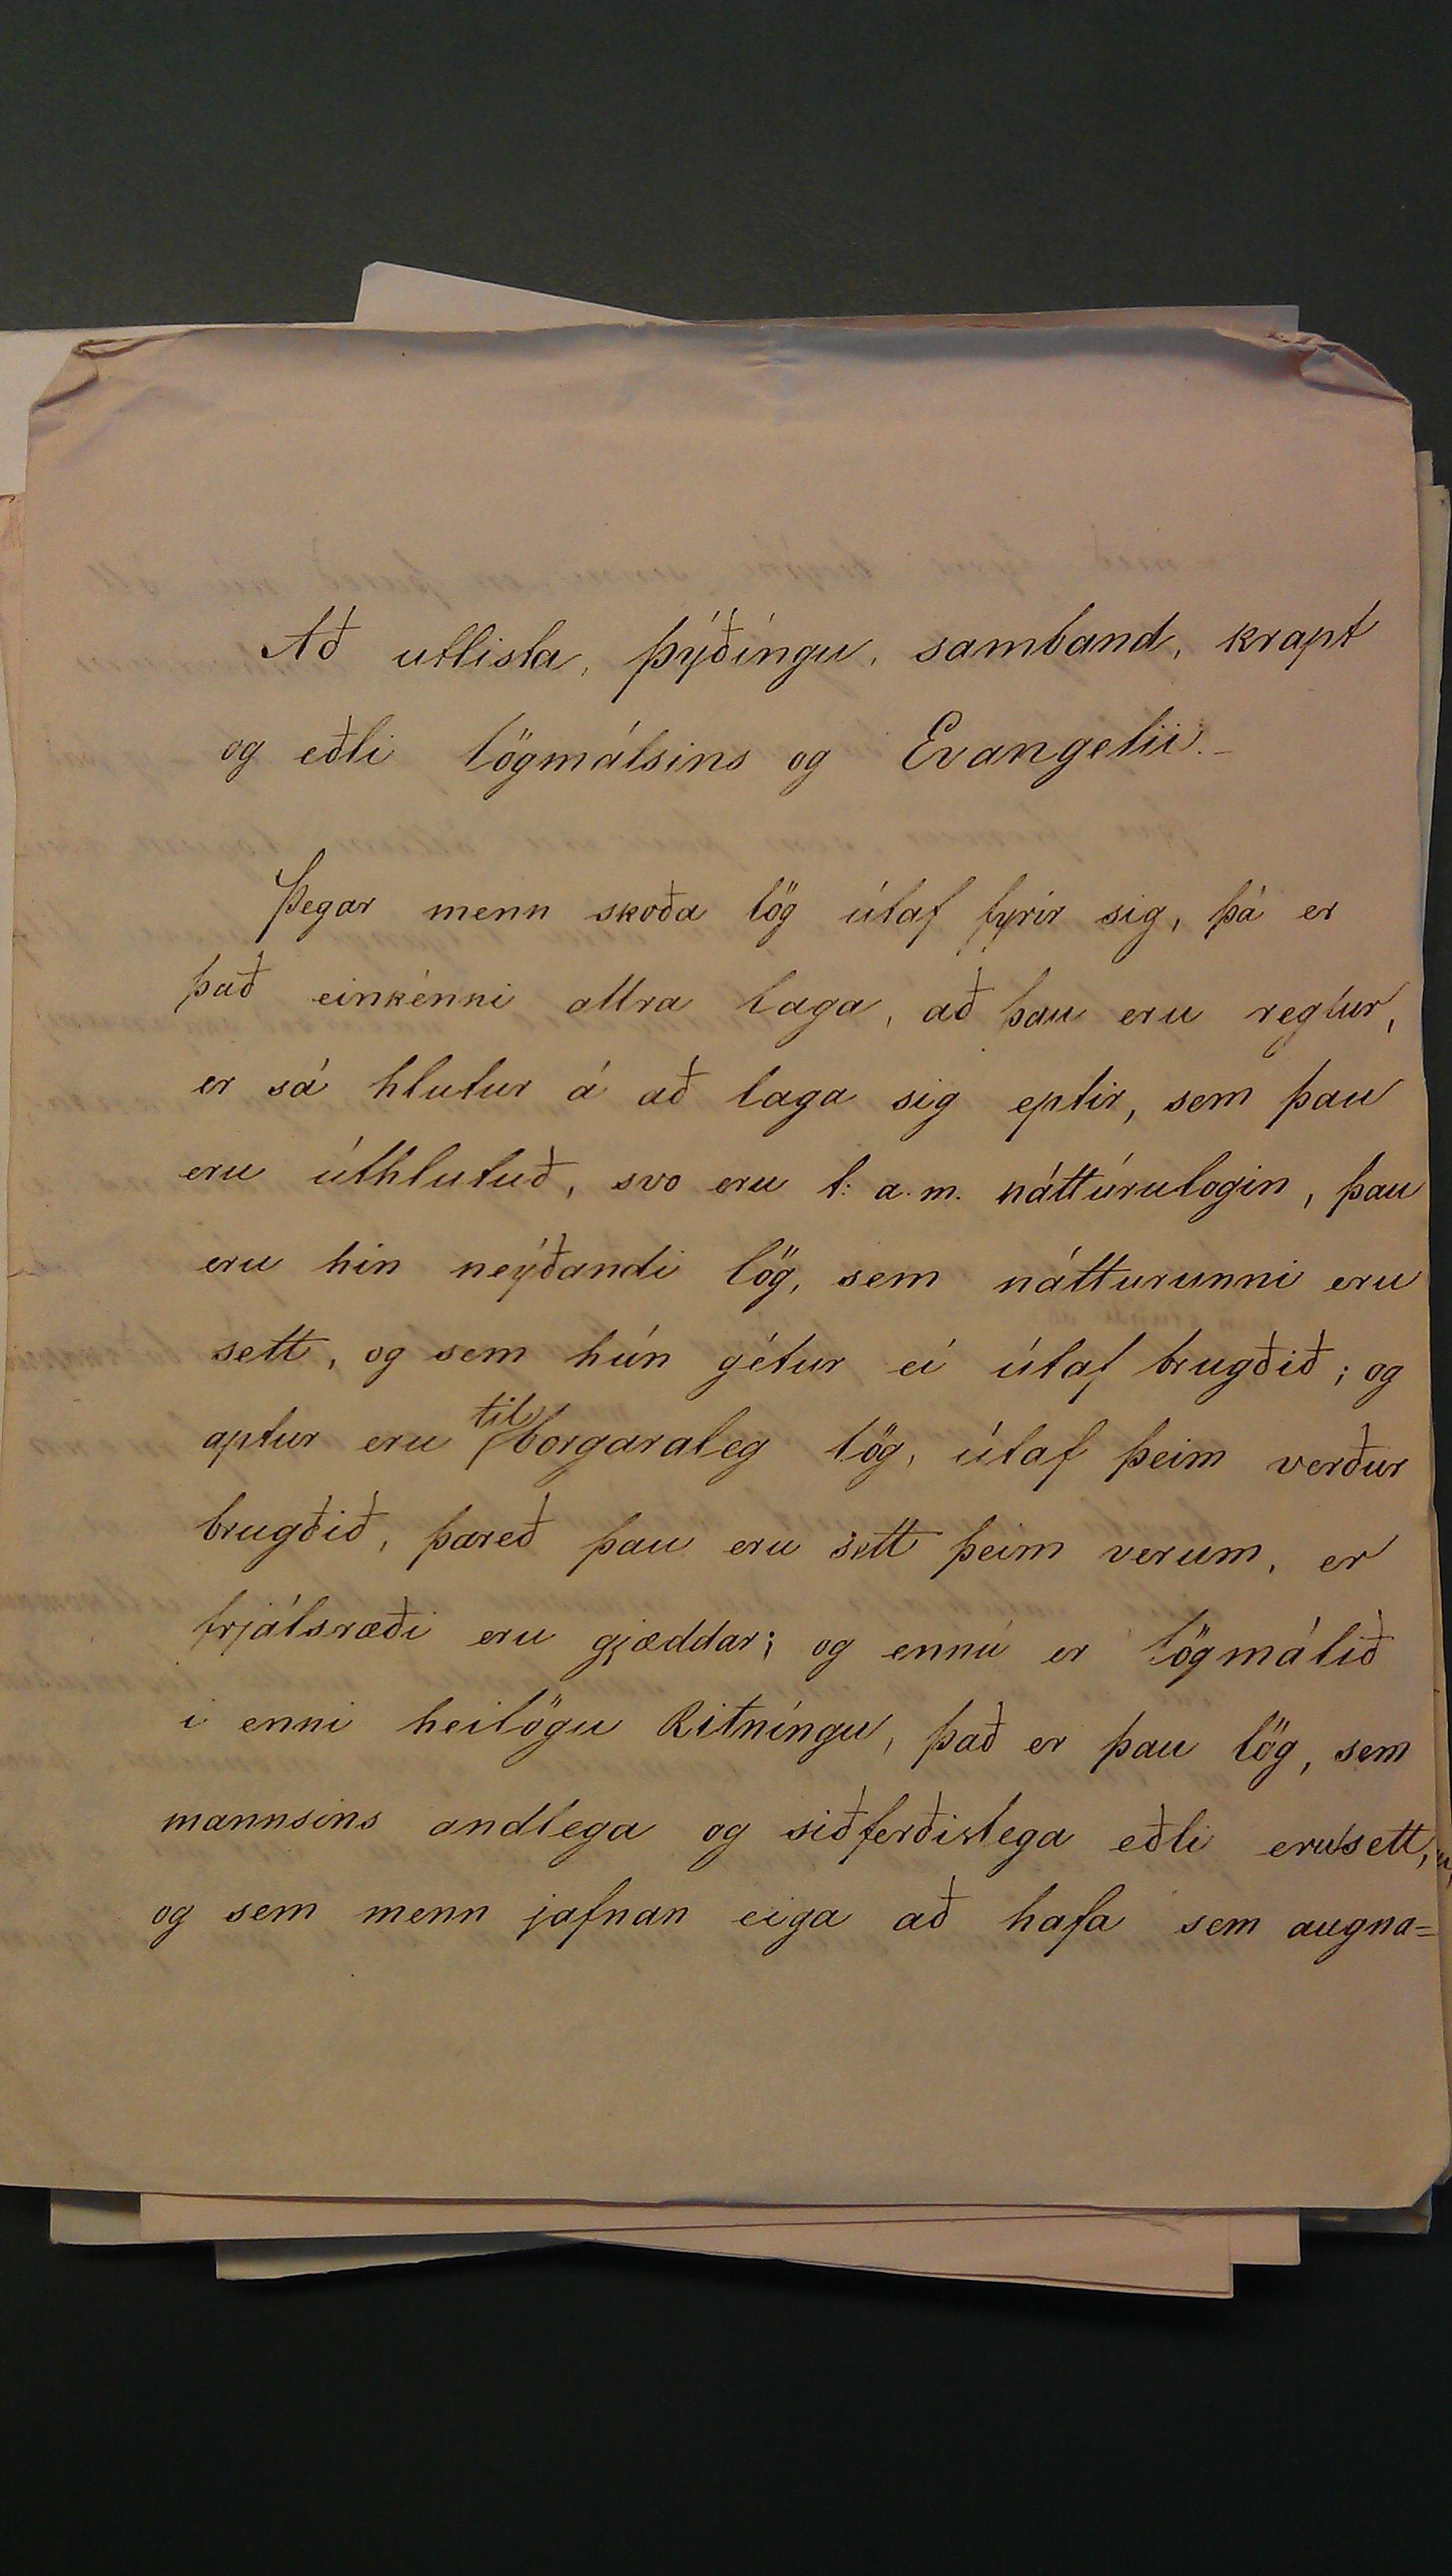 Að utlista, þýðíngu, samband, krapt
og eðli lögmálsins og Evangelii.-
Þegar menn skoða lög útaf fyrir sig, þá er
það einkénni allra laga, að þau eru reglur,
er sá hlutur á að laga sig eptir, sem þau
eru úthlutuð, svo eru t: a. m. náttúrulogin, þau
eru hin neýðandi lög, sem nátturunni eru
sett, og sem hún gétur ei útaf brugðið; og
aptur eru til borgaraleg lög, útaf þeim verður
brugðið, þareð þau eru sett þeim verum, er
frjálsræði eru gjæddar; og ennú er lögmálið
i enni heilögu Ritníngu, það er þau lög, sem
mannsins andlega og siðferðislega eðli eru sett,
og sem menn jafnan eiga að hafa sem augna=